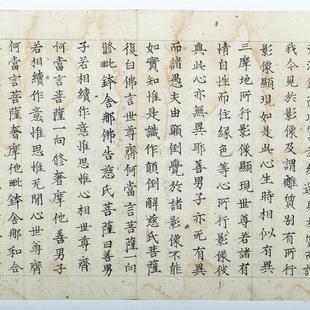 我今見於影像及謂離質別有所行
影像顯現如是此心生時相似有異
三摩地所行影像顯現世尊若諸有
情自性而住緣色等心所行影像彼
與此心亦無異耶善男子亦无有異
而諸愚夫由顛倒覺於諸影像不能
如實知惟是識作顛倒解慈氏菩薩
復白佛言世尊齊何當言菩薩一向
修毗鉢舍那佛告慈氏菩薩曰善男
子若相續作意惟思惟心相世尊齊
何當言菩薩一向修奢摩他善男子
若相續作意惟思惟无間心世尊齊
何當言菩薩奢摩他毗鉢舍那和合